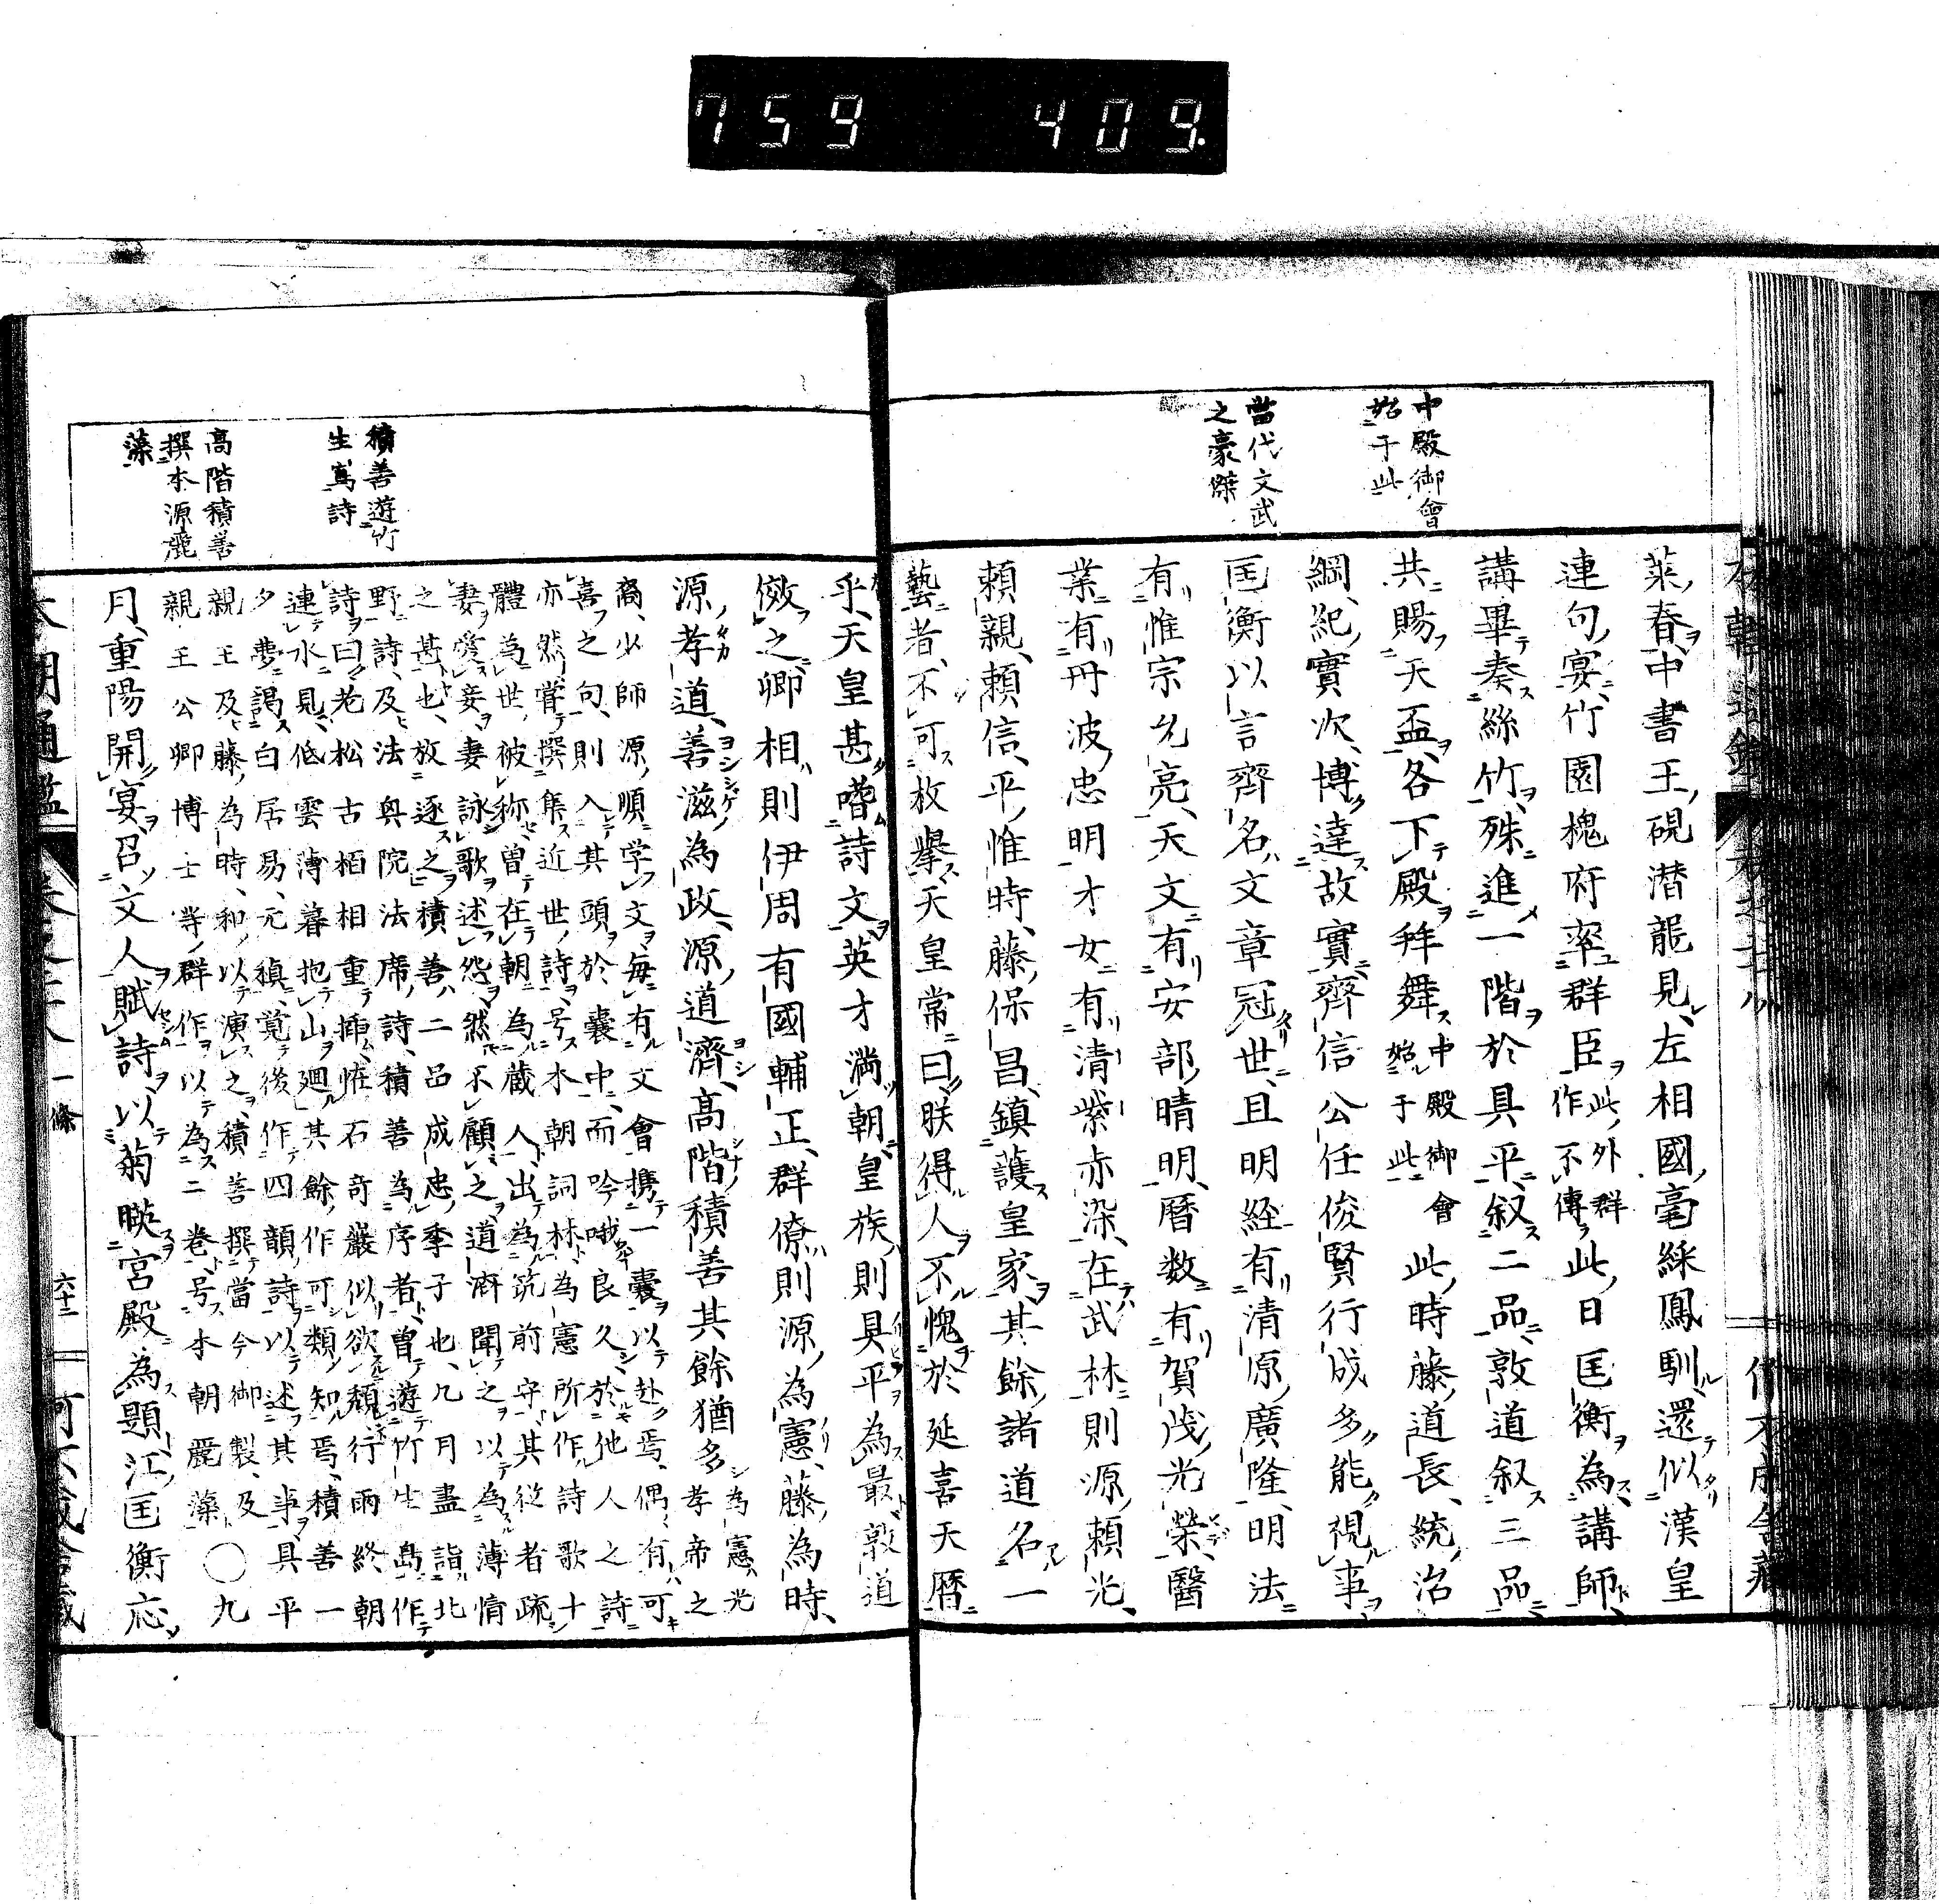 759 409.
中殿御會
始于此
當代文武
之豪傑
萊春中書王硯潜龍見左相國毫綵鳳馴還似漢皇
連句宴竹園槐府率群臣此外群作不傳此日匡衡為講師
講畢奏絲竹殊進一階於具平叙二品敦道叙三品
共賜天盃各下殿拜舞中殿御會始于此此時藤道長統治
綱紀實次博達故實齊信公任俊賢行成多能視事
匡衡以言齊名文章冠世且明経有清原廣隆明法
有惟宗允亮天文有安部晴明暦数有賀茂光榮醫
業有丹波忠明才女有清紫赤染在武林則源頼光
頼親頼信平惟時藤保昌鎮護皇家其餘諸道名一
藝者不可枚擧天皇常曰朕得人不愧於延喜天暦
積善遊竹
生嶌詩
高階積善
撰本源麗
藻
乎天皇甚嗜詩文英才満朝皇族則具平為最敦道
倣之卿相則伊周有國輔正群僚則源為憲藤為時
源孝道善滋為政源道濟高階積善其餘猶多為憲光孝帝之
裔少師源順学文毎有文會携一囊以赴焉偶有可
喜之句則入其頭於囊中而吟哦良久於他人之詩
亦然嘗撰集近世詩号本朝詞林為憲所作詩歌十
體為世被称曽在朝為蔵人出為筑前守其従者疏
妻愛妾妻詠歌述怨然不顧之道濟聞之以為薄情
之甚也放逐之積善二品成忠季子也九月盡詣北
野詩及法興院法席詩積善為序者曽遊竹生島作
詩曰老松古栢相重挿恠石奇巖似欲頽行雨終朝
連水見低雲薄暮抱山廻其餘作可類知焉積善一
夕夢謁白居易元稹覚後作四韻詩以述其事具平
親王及藤為時和以演之積善撰當今御製及
親王公卿博士等群作以為二巻号本朝麗藻〇九
月重陽開宴召文人賦詩以菊暎宮殿為題江匡衡応
一條
六十二